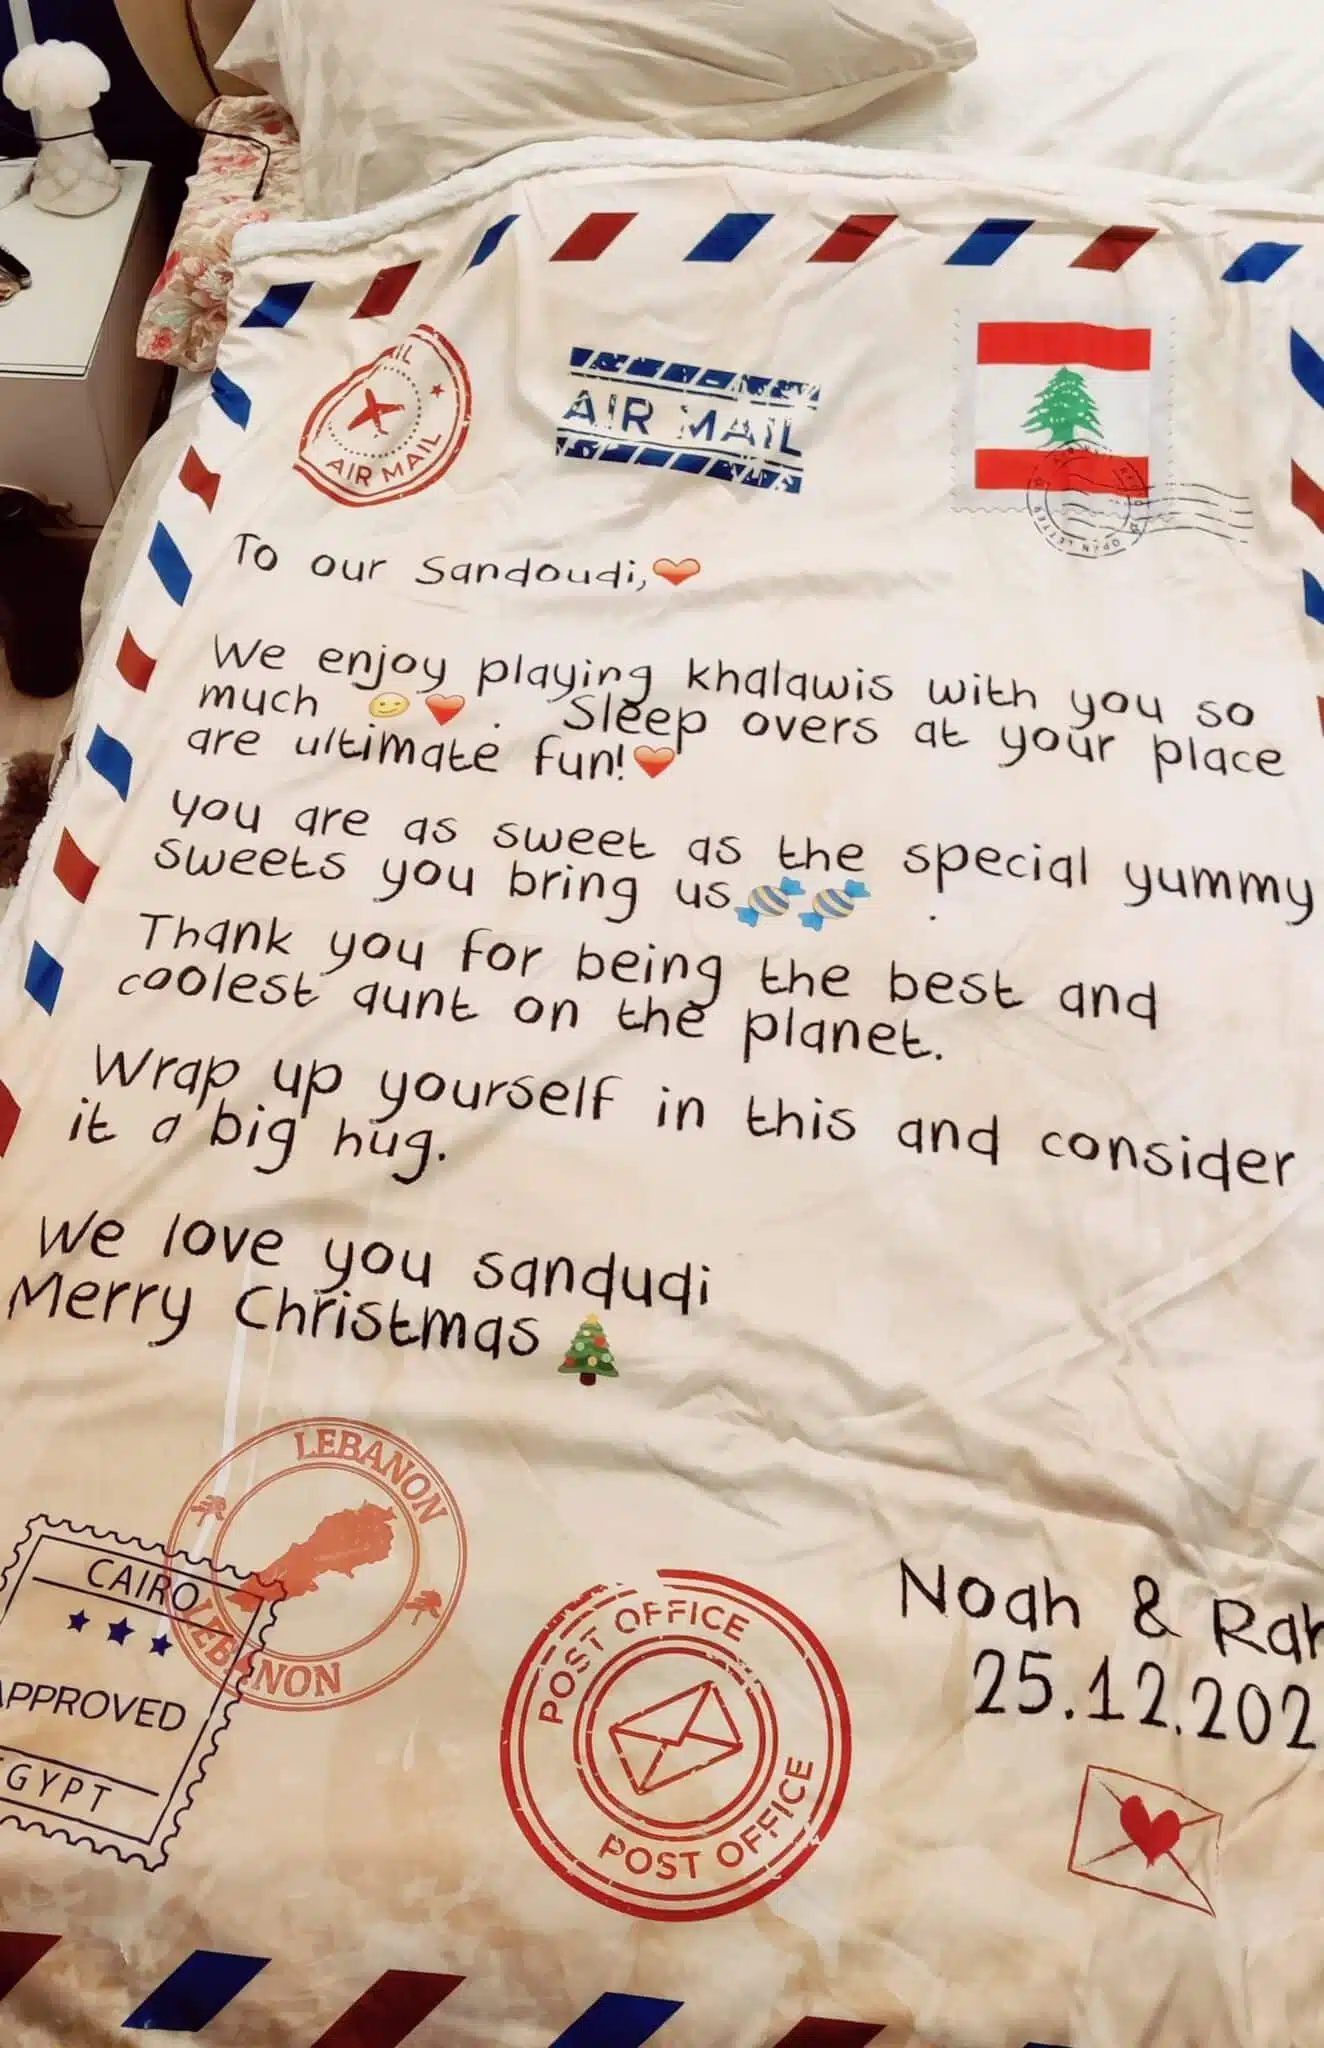 AIR MAIL
AIR MAIL
OPEN LETTER
To our Sandoudi,❤️
We enjoy playing khalawis with you so
much 😊❤️. Sleep overs at your place
are ultimate fun!❤️
you are as sweet as the special yummy
sweets you bring us🍬🍬 .
Thank you for being the best and
coolest aunt on the planet.
Wrap up yourself in this and consider
it a big hug.
We love you sandudi
Merry Christmas 🎄
LEBANON
LEBANON
CAIRO
APPROVED
EGYPT
POST OFFICE
POST OFFICE
Noah & Rah
25.12.202